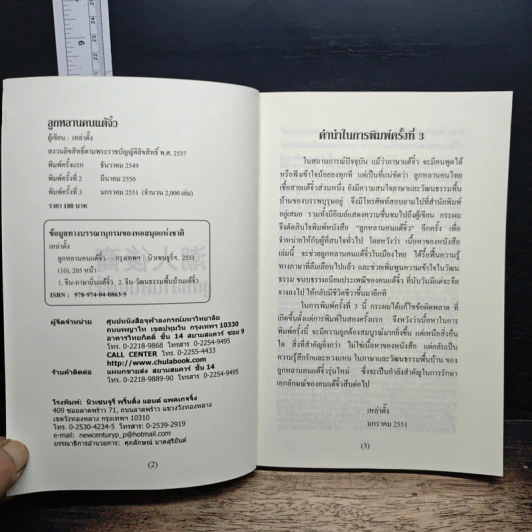 ลูกหลานคนแต้จิ๋ว
ผู้เขียน : เหล่าตั้ง
สงวนลิขสิทธิ์ตามพระราชบัญญัติลิขสิทธิ์ พ.ศ. 2537
พิมพ์ครั้งแรก ธันวาคม 2549
พิมพ์ครั้งที่ 2 มีนาคม 2550
พิมพ์ครั้งที่ 3 มกราคม 2551 (จำนวน 2,000 เล่ม)
ราคา 180 บาท
ข้อมูลทางบรรณานุกรมของหอสมุดแห่งชาติ
เหล่าตั้ง
ลูกหลานคนแต้จิ๋ว -- กรุงเทพฯ : นิวเซนจูรีฯ, 2551
(10), 205 หน้า
1. จีน-ภาษาถิ่นแต้จิ๋ว 2. จีน-วัฒนธรรมพื้นบ้านแต้จิ๋ว
ISBN : 978-974-04-0863-5
ผู้จัดจำหน่าย ศูนย์หนังสือจุฬาลงกรณ์มหาวิทยาลัย
ถนนพญาไท เขตปทุมวัน กรุงเทพฯ 10330
อาคารวิทยกิตติ์ ชั้น 14 สยามสแควร์ ซอย 9
โทร. 0-2218-9868 โทรสาร 0-2254-9495
CALL CENTER โทร. 0-2255-4433
http://www.chulabook.com
ร้านค้าติดต่อ แผนกขายส่ง สยามสแควร์ ชั้น 14
โทร. 0-2218-9889-90 โทรสาร 0-2254-9495
โรงพิมพ์: นิวเซนจูรี่ พริ้นติ้ง แอนด์ แพคเกจจิ้ง
409 ซอยลาดพร้าว 71, ถนนลาดพร้าว แขวงวังทองหลาง
เขตวังทองหลาง กรุงเทพฯ 10310
โทร. 0-2530-4234-5 โทรสาร 0-2539-2919
e-mail: newcenturyp_p@hotmail.com
บรรณาธิการอำนวยการ: ศุภลักษณ์ นาคสุริยันต์
(2)
คำนำในการพิมพ์ครั้งที่ 3
ในสถานการณ์ปัจจุบัน แม้ว่าภาษาแต้จิ๋ว จะมีคนพูดได้
หรือฟังเข้าใจน้อยลงทุกที แต่เป็นที่แน่ชัดว่า ลูกหลานคนไทย
เชื้อสายแต้จิ๋วส่วนหนึ่ง ยังมีความสนใจภาษาและวัฒนธรรมพื้น
บ้านของบรรพบุรุษอยู่ จึงมีโทรศัพท์สอบถามไปที่สำนักพิมพ์
อยู่เสมอ รวมทั้งมีอีเมล์แสดงความชื่นชมไปถึงผู้เขียน กระผม
จึงตัดสินใจพิมพ์หนังสือ "ลูกหลานคนแต้จิ๋ว" อีกครั้ง เพื่อ
จำหน่ายให้กับผู้ที่สนใจทั่วไป โดยหวังว่า เนื้อหาของหนังสือ
เล่มนี้ จะช่วยลูกหลานคนแต้จิ๋วในเมืองไทย ได้รื้อฟื้นความรู้
ทางภาษาที่ลืมเลือนไปแล้ว และช่วยเพิ่มพูนความเข้าใจในวัฒน
ธรรม ขนบธรรมเนียมประเพณีของคนแต้จิ๋ว ที่นับวันมีแต่จะจืด
จางลงไป ให้กลับมีชีวิตชีวาขึ้นมาอีกที
ในการพิมพ์ครั้งที่ 3 นี้ กระผมได้แก้ไขข้อผิดพลาด ที่
เกิดขึ้นตั้งแต่การพิมพ์ในสองครั้งแรก จึงหวังว่าเนื้อหาในการ
พิมพ์ครั้งนี้ จะมีความถูกต้องสมบูรณ์มากยิ่งขึ้น แต่เหนือสิ่งอื่น
ใด สิ่งที่สำคัญยิ่งกว่า ไม่ใช่เนื้อหาของหนังสือ แต่กลับเป็น
ความรู้สึกรักและหวงแหน ในภาษาและวัฒนธรรมพื้นบ้าน ของ
ลูกหลานคนแต้จิ๋วรุ่นใหม่ ซึ่งจะเป็นกำลังสำคัญในการรักษา
เอกลักษณ์ของคนแต้จิ๋วสืบต่อไป
เหล่าตั้ง
มกราคม 2551
(3)